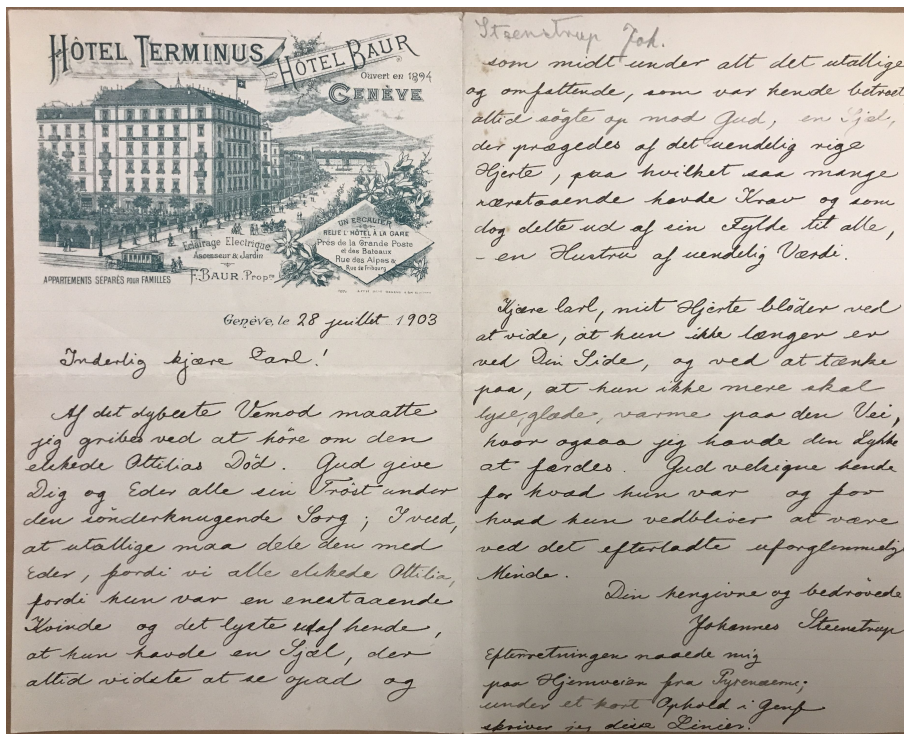 HÔTEL TERMINUS
HÔTEL BAUR
Ouvert en 1894
GENÈVE
UN ESCALIER
RELIE L'HÔTEL À LA GARE
Près de la Grande Poste
et des Bateaux
Rue des Alpes &
Rue de Fribourg
Eclairage Electrique
Ascenseur & Jardin
F. BAUR. Propre
APPARTEMENTS SÉPARÉS POUR FAMILLES
Genève, le 28 juillet 1903
Inderlig kjære Carl!
Af det dybeste Vemod maatte
jeg gribes ved at höre om den
elskede Ottilias Död. Gud give
Dig og Eder alle sin Tröst under
den sönderknugende Sorg; I veed,
at utallige maa dele den med
Eder, fordi vi alle elskede Ottilia,
fordi hun var en enestaaende
Kvinde og det lyste ud af hende,
at hun havde en Sjæl, der
altid vidste at se opad og
Steenstrup Joh.
som midt under alt det utallige
og omfattende, som var hende betroet
altid sögte op mod Gud, en Sjæl,
der prægedes af det uendelig rige
Hjerte, paa hvilket saa mange
nærstaaende havde Krav og som
dog delte ud af sin Fylde til alle,
- en Hustru af uendelig Værdi.
Kjære Carl, mit Hjerte blöder ved
at vide, at hun ikke længer er
ved Din Side, og ved at tænke
paa, at hun ikke mere skal
lyse, glæde, varme paa den Vei,
hvor ogsaa jeg havde den Lykke
at færdes. Gud velsigne hende
for hvad hun var og for
hvad hun vedbliver at være
ved det efterladte uforglemmelige
Minde.
Din hengivne og bedrövede
Johannes Steenstrup
Efterretningen naaede mig
paa Hjemveien fra Pyrenæerne;
under et kort Ophold i Genf
skriver jeg disse Linier.